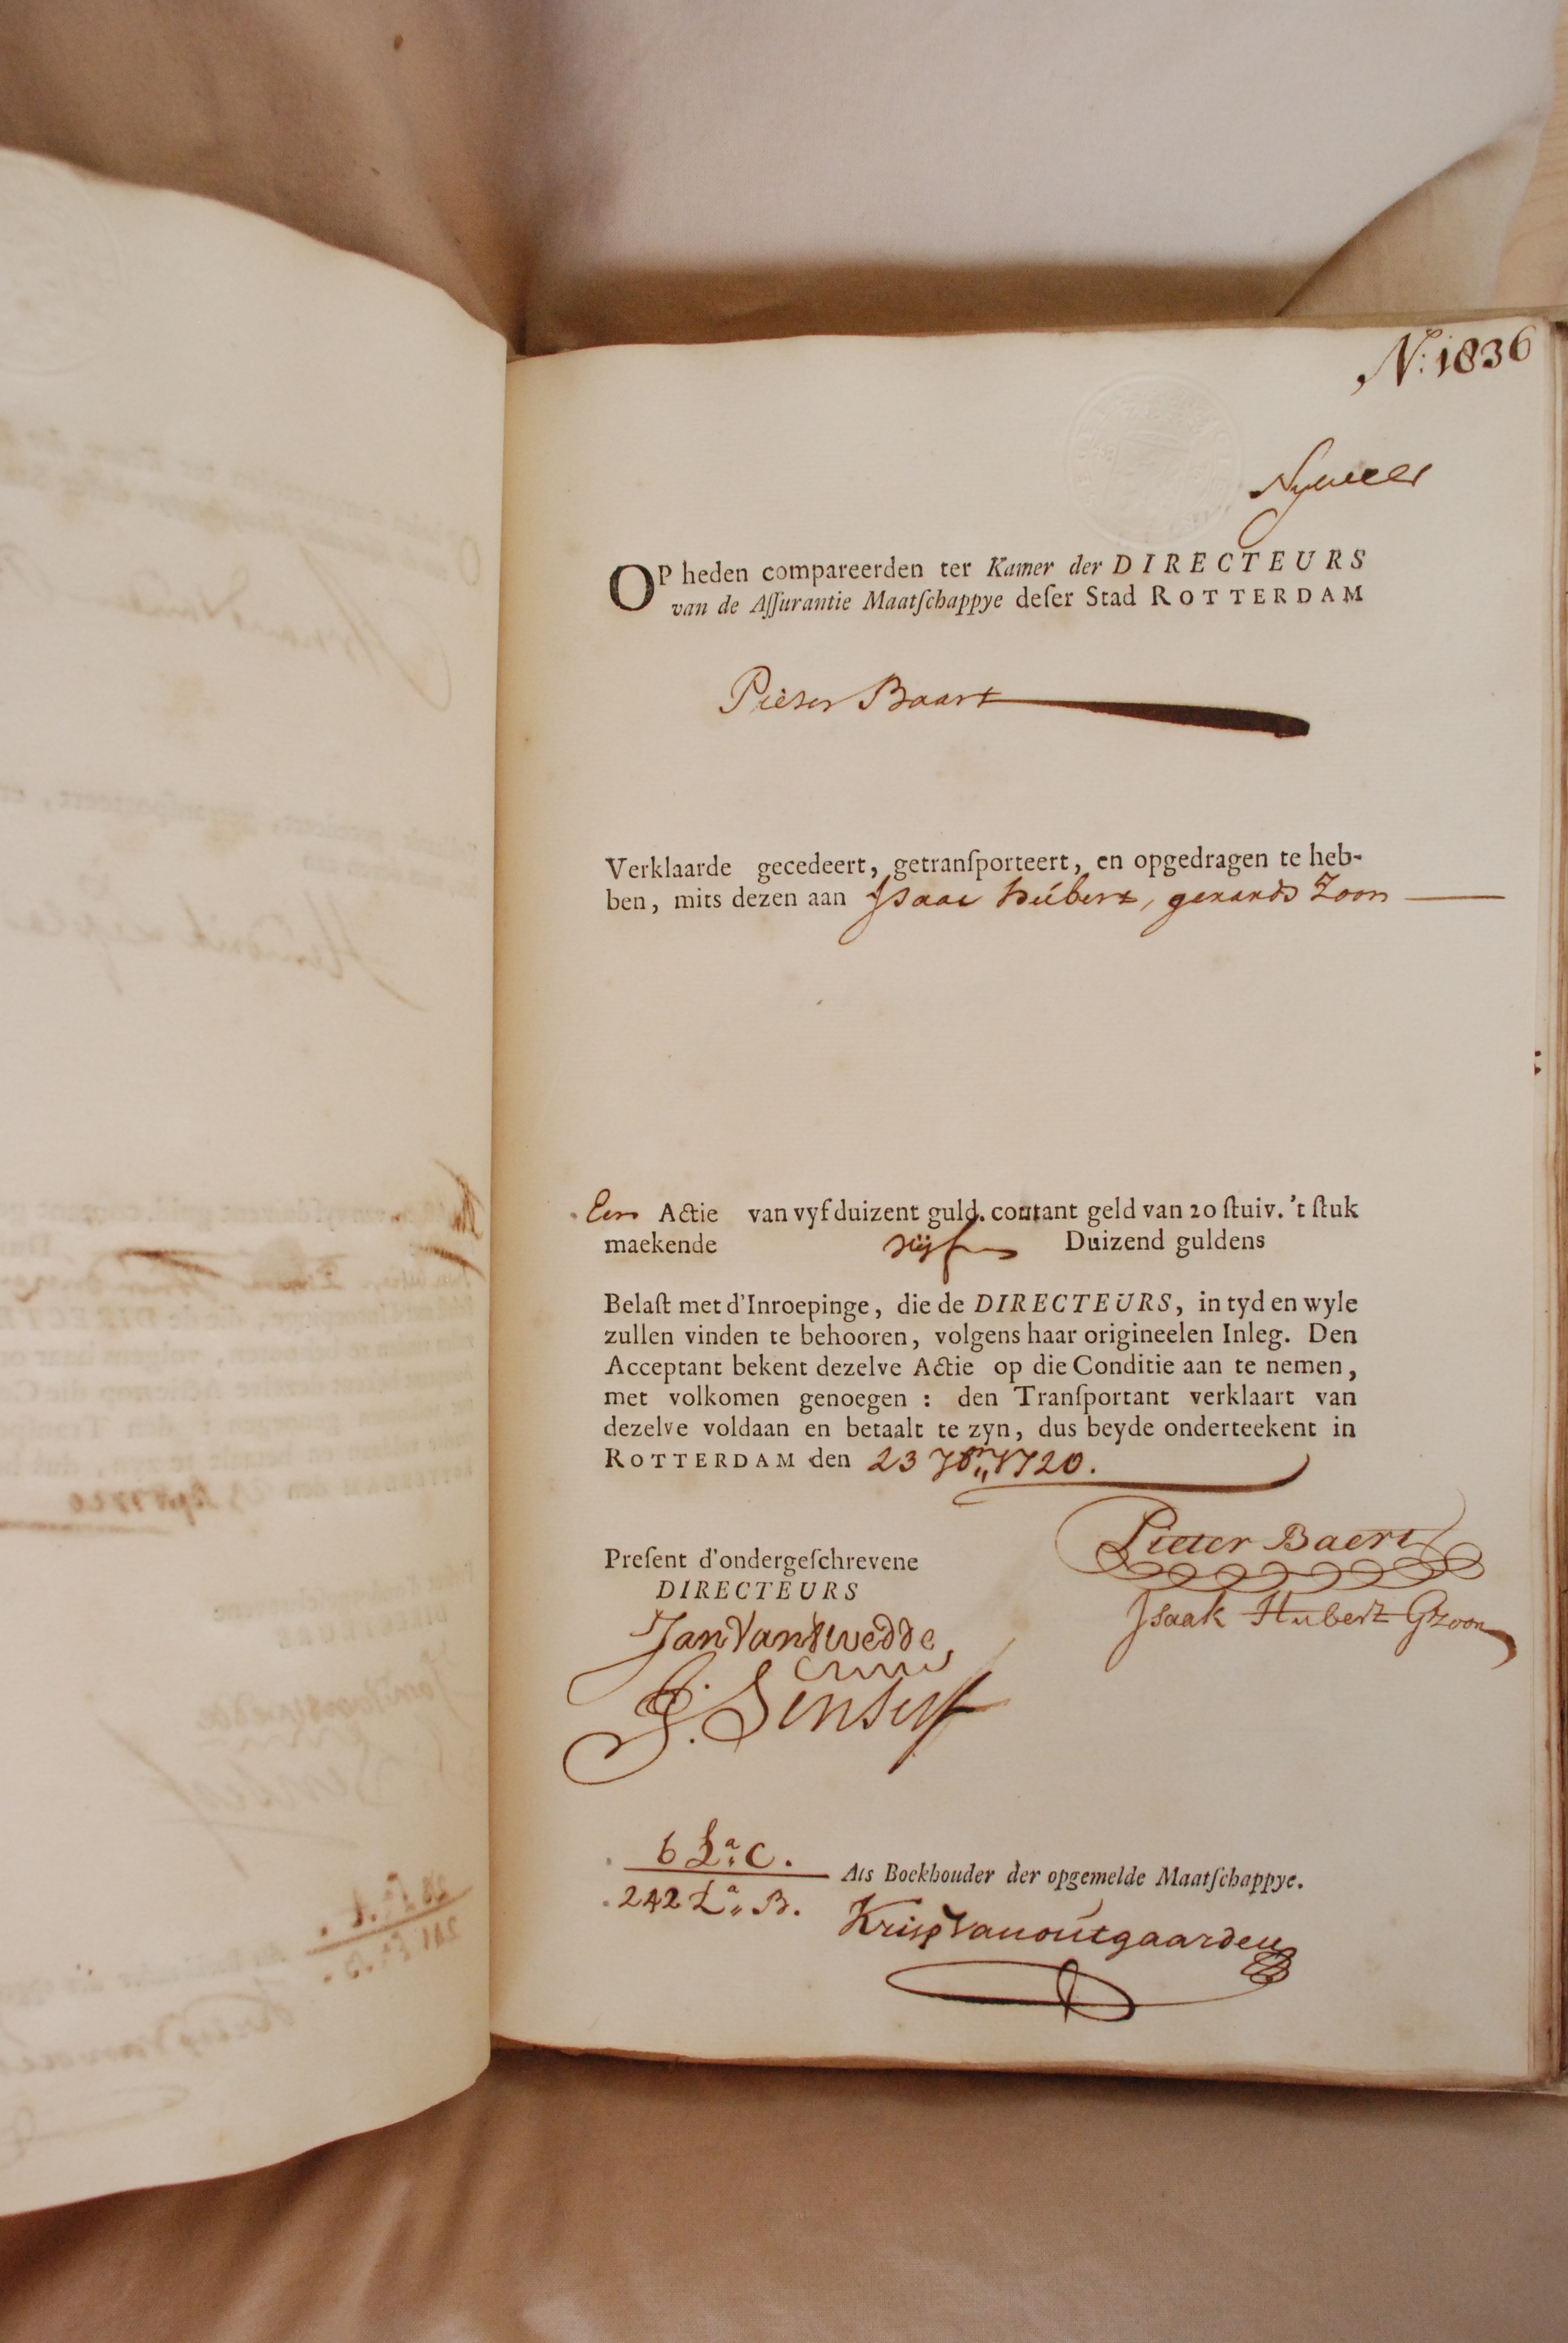 N: 1836
OP heden compareerden ter Kamer der DIRECTEURS
van de Aſſurantie Maatſchappye deſer Stad ROTTERDAM
Pieter Baart
Verklaarde gecedeert, getranſporteert, en opgedragen te heb-
ben, mits dezen aan Isaac Hübert, gerards Zoon
Een Actie van vyf duizent guld. contant geld van 20 ſtuiv. 't ſtuk
maekende vijf Duizend guldens
Belaſt met d'Inroepinge, die de DIRECTEURS, in tyd en wyle
zullen vinden te behooren, volgens haar origineelen Inleg. Den
Acceptant bekent dezelve Actie op die Conditie aan te nemen,
met volkomen genoegen : den Tranſportant verklaart van
dezelve voldaan en betaalt te zyn, dus beyde onderteekent in
ROTTERDAM den 23 7br 1720.
Pieter Baert
Preſent d'ondergeſchrevene
DIRECTEURS
Isaak Hubert Gzoon
Jan Van
6 La C.
Als Boekhouder der opgemelde Maatſchappye.
242 La B.
Krisp Vanoutgaarden